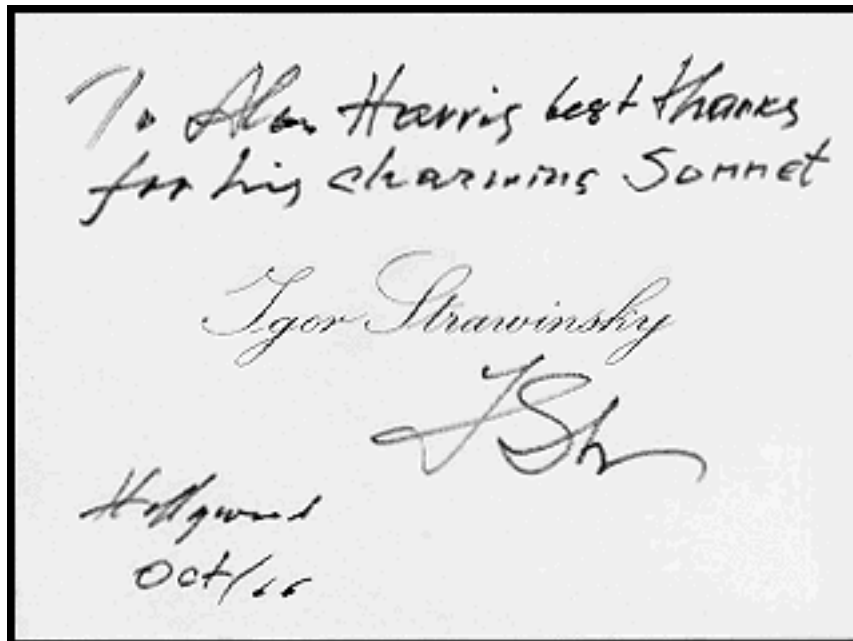 To Alan Harris best thanks
for his charming Sonnet
Igor Strawinsky
IStr
Hollywood
Oct/66